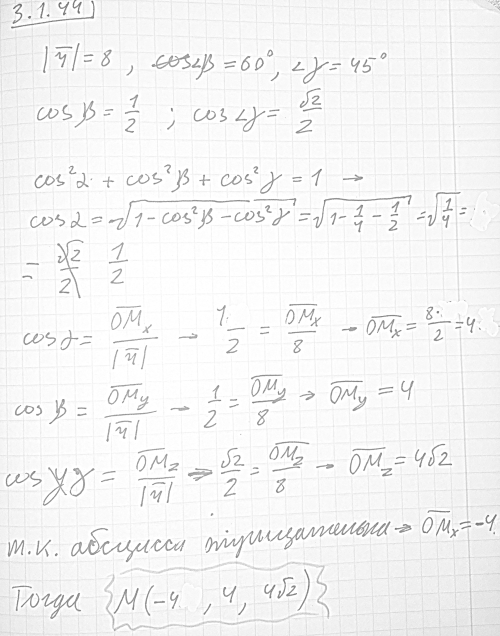 3.1.44
|r̅| = 8 , ∠β = 60°, ∠γ = 45°
cos β = 1/2 ; cos∠γ = √2/2
cos²α + cos²β + cos²γ = 1 →
cos α = √(1 - cos²β - cos²γ) = √(1 - 1/4 - 1/2) = √(1/4) =
= 1/2
cos α = OM̅x/|r̅| → 1/2 = OM̅x/8 → OM̅x = 8·/2 = 4
cos β = OM̅y/|r̅| → 1/2 = OM̅y/8 → OM̅y = 4
cos γ = OM̅z/|r̅| → √2/2 = OM̅z/8 → OM̅z = 4√2
т.к. абсцисса отрицательна → OM̅x = -4
Тогда M(-4 , 4, 4√2)